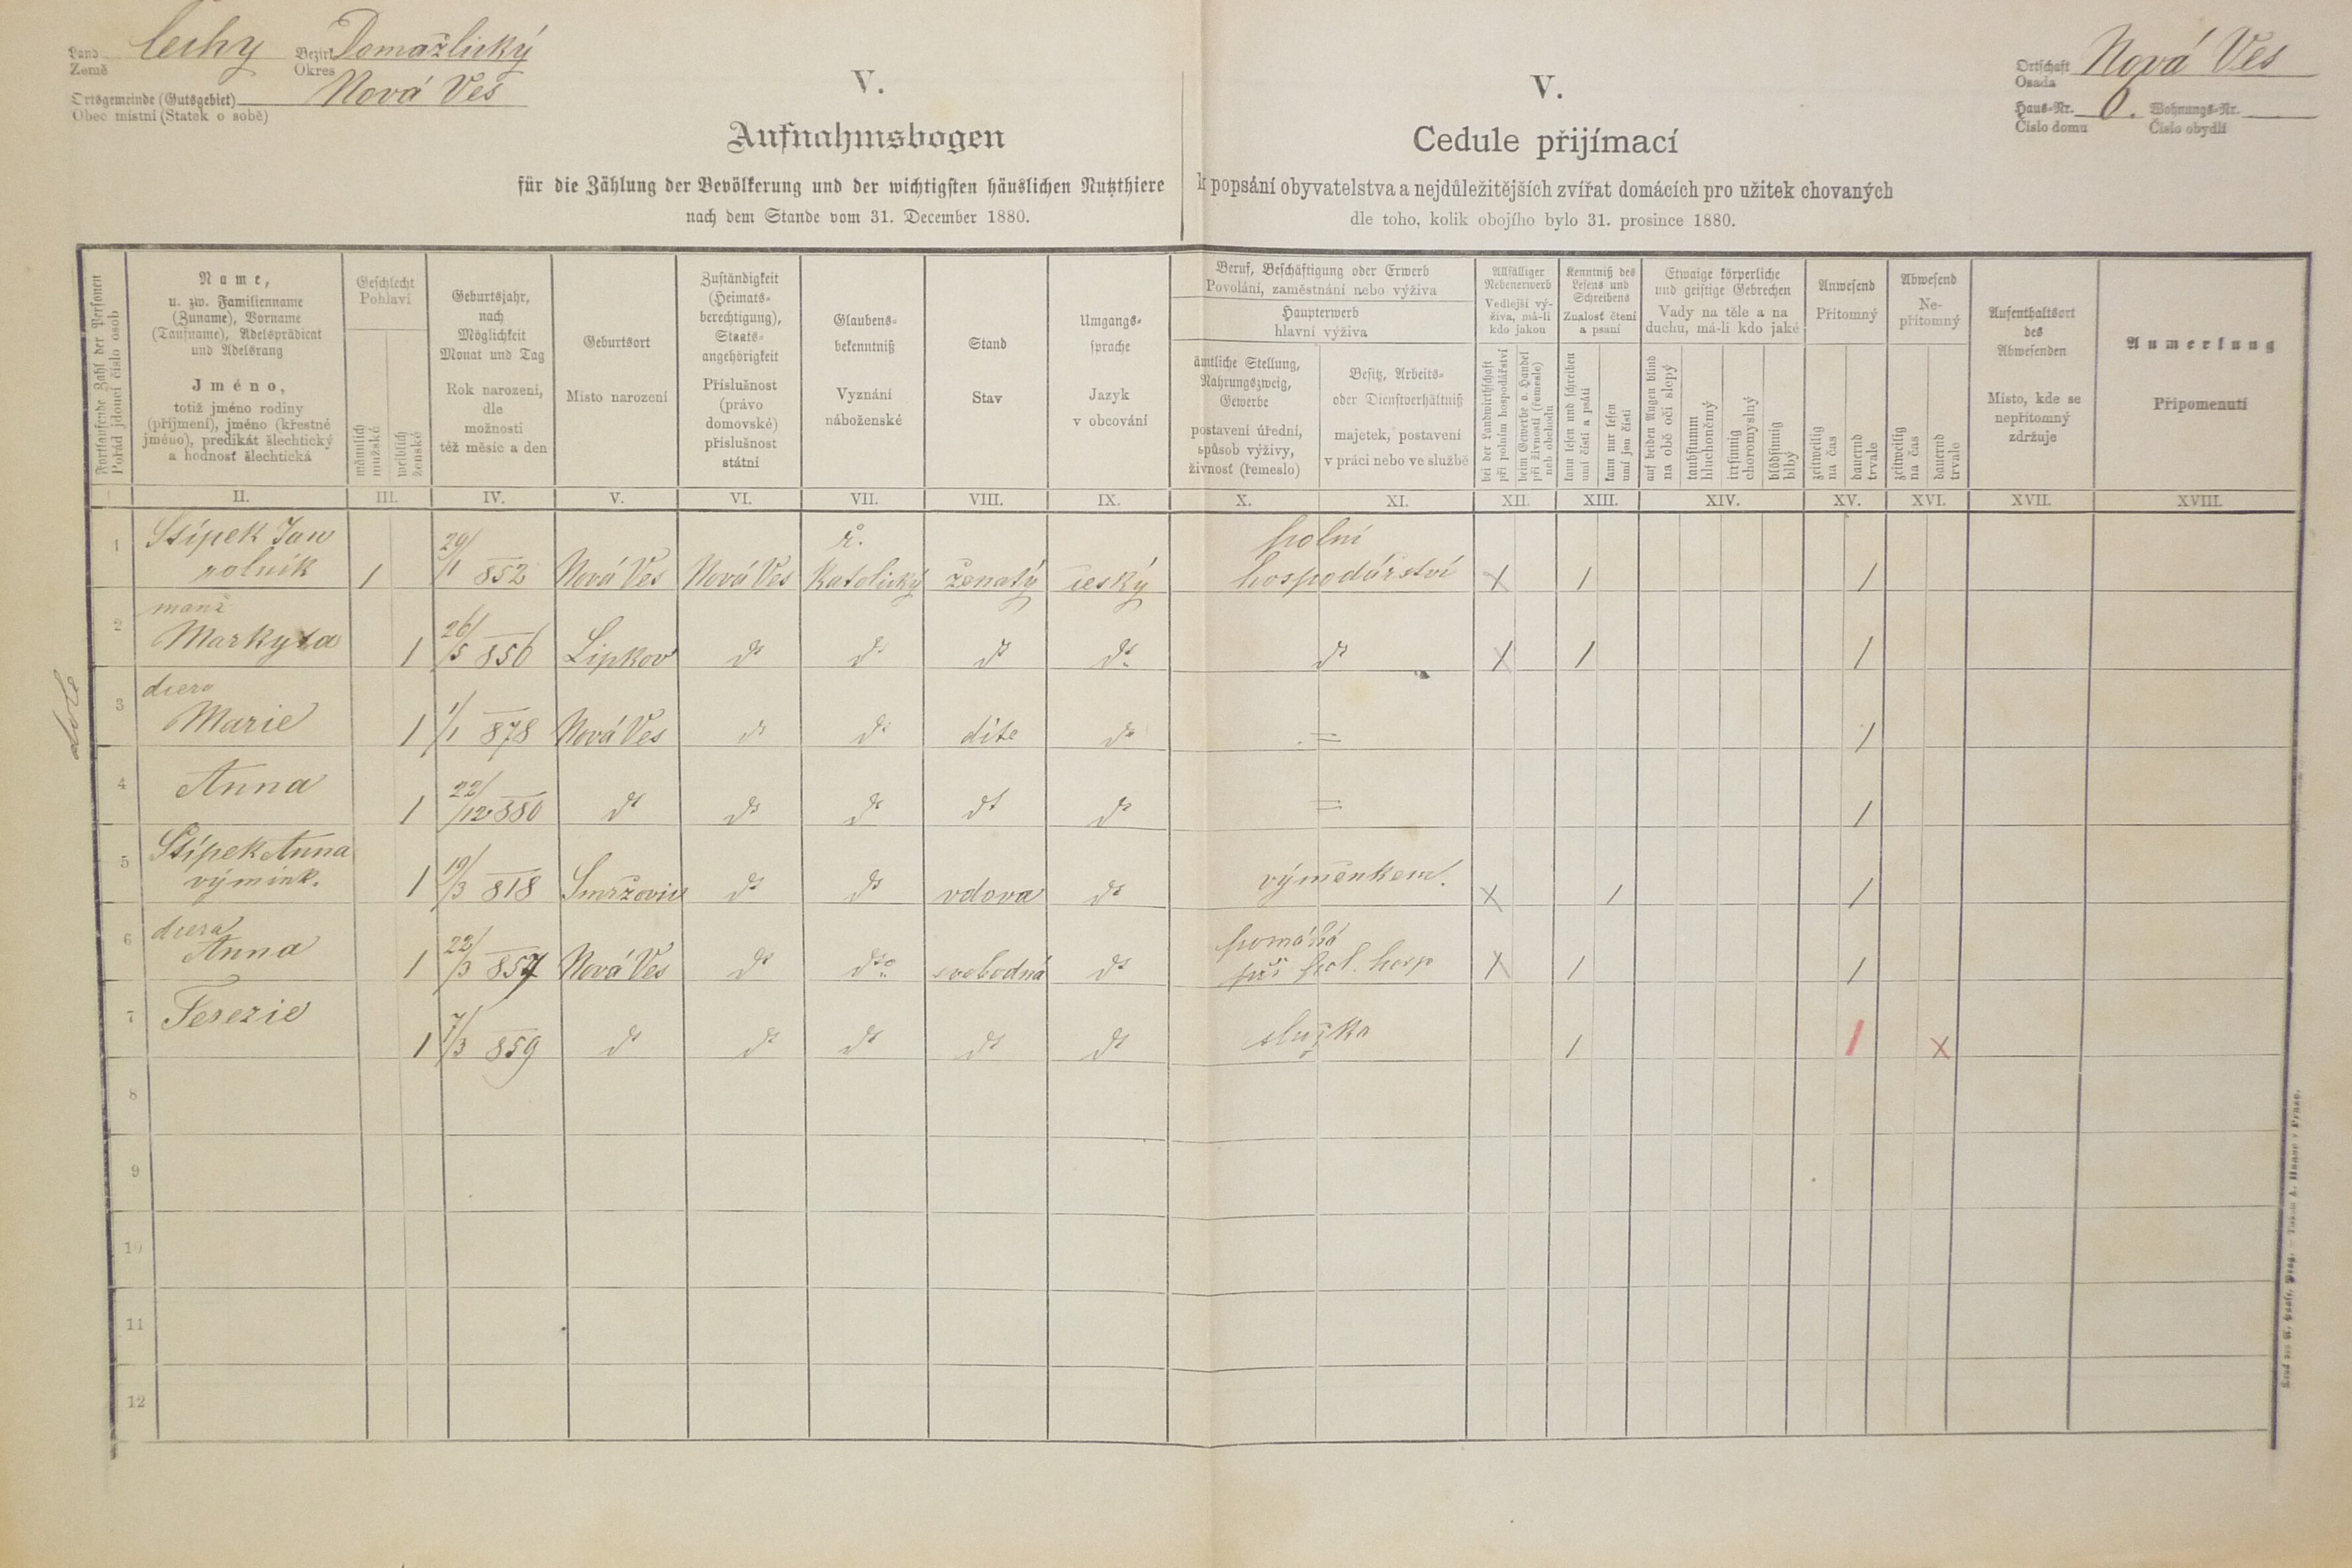 Land Země Čechy Bezirk Okres Domažlický
Ortsgemeinde (Gutsgebiet) Nová Ves
Obec místní (Statek o sobě)
V.
Aufnahmsbogen
für die Zählung der Bevölkerung und der wichtigsten häuslichen Nutzthiere
nach dem Stande vom 31. December 1880.
V.
Cedule přijímací
k popsání obyvatelstva a nejdůležitějších zvířat domácích pro užitek chovaných
dle toho, kolik obojího bylo 31. prosince 1880.
Ortschaft Osada Nová Ves
Haus-Nr. Číslo domu Wohnungs-Nr. Číslo obydlí
Fortlaufende Zahl der Personen
Pořád jdoucí číslo osob
Name,
u. zw. Familienname
(Zuname), Vorname
(Taufname), Adelsprädicat
und Adelsrang
Jméno,
totiž jméno rodiny
(příjmení), jméno (křestné
jméno), predikát šlechtický
a hodnosť šlechtická
Geschlecht
Pohlaví
männlich
mužské
weiblich
ženské
Geburtsjahr,
nach
Möglichkeit
Monat und Tag
Rok narození,
dle
možnosti
též měsíc a den
Geburtsort
Místo narození
Zuständigkeit
(Heimats-
berechtigung),
Staats-
angehörigkeit
Příslušnost
(právo
domovské)
příslušnost
státní
Glaubens-
bekenntniß
Vyznání
náboženské
Stand
Stav
Umgangs-
sprache
Jazyk
v obcování
Beruf, Beschäftigung oder Erwerb
Povolání, zaměstnání nebo výživa
Haupterwerb
hlavní výživa
ämtliche Stellung,
Nahrungszweig,
Gewerbe
postavení úřední,
spůsob výživy,
živnosť (řemeslo)
Besitz, Arbeits-
oder Dienstverhältniß
majetek, postavení
v práci nebo ve službě
Allfälliger
Nebenerwerb
Vedlejší vý-
živa, má-li
kdo jakou
bei der Landwirthschaft
při polním hospodářství
beim Gewerbe o. Handel
při živnosti (řemesle)
neb obchodu
Kenntniß des
Lesens und
Schreibens
Znalosť čtení
a psaní
kann lesen und schreiben
umí čísti a psáti
kann nur lesen
umí jen čísti
Etwaige körperliche
und geistige Gebrechen
Vady na těle a na
duchu, má-li kdo jaké
auf beiden Augen blind
na obě oči slepý
taubstumm
hluchoněmý
irrsinnig
choromyslný
blödsinnig
blbý
Anwesend
Přítomný
zeitweilig
na čas
dauernd
trvale
Abwesend
Ne-
přítomný
zeitweilig
na čas
dauernd
trvale
Aufenthaltsort
des
Abwesenden
Místo, kde se
nepřítomný
zdržuje
Anmerkung
Připomenutí
I II. III. IV. V. VI. VII. VIII. IX. X. XI. XII. XIII. XIV. XV. XVI. XVII. XVIII.
1 Stípek Jan rolník 1 29/1 852 Nová Ves Nová Ves ř. Katolický ženatý český polní hospodářství X 1 1
2 manž Markyta 1 26/5 856 Lipkov dt dt dt dt dt X 1 1
3 dcera Marie 1 1/1 878 Nová Ves dt dt dite dt = 1
4 Anna 1 22/12 880 dt dt dt dt dt = 1
5 Stípek Anna výmink. 1 19/3 818 Smržovic dt dt vdova dt výměnkem. X 1 1
6 dcera Anna 1 22/3 857 Nová Ves dt dto svobodná dt pomáhá při pol. hosp X 1 1
7 Terezie 1 7/3 859 dt dt dt dt dt služka 1 1 X
8
9
10
11
12